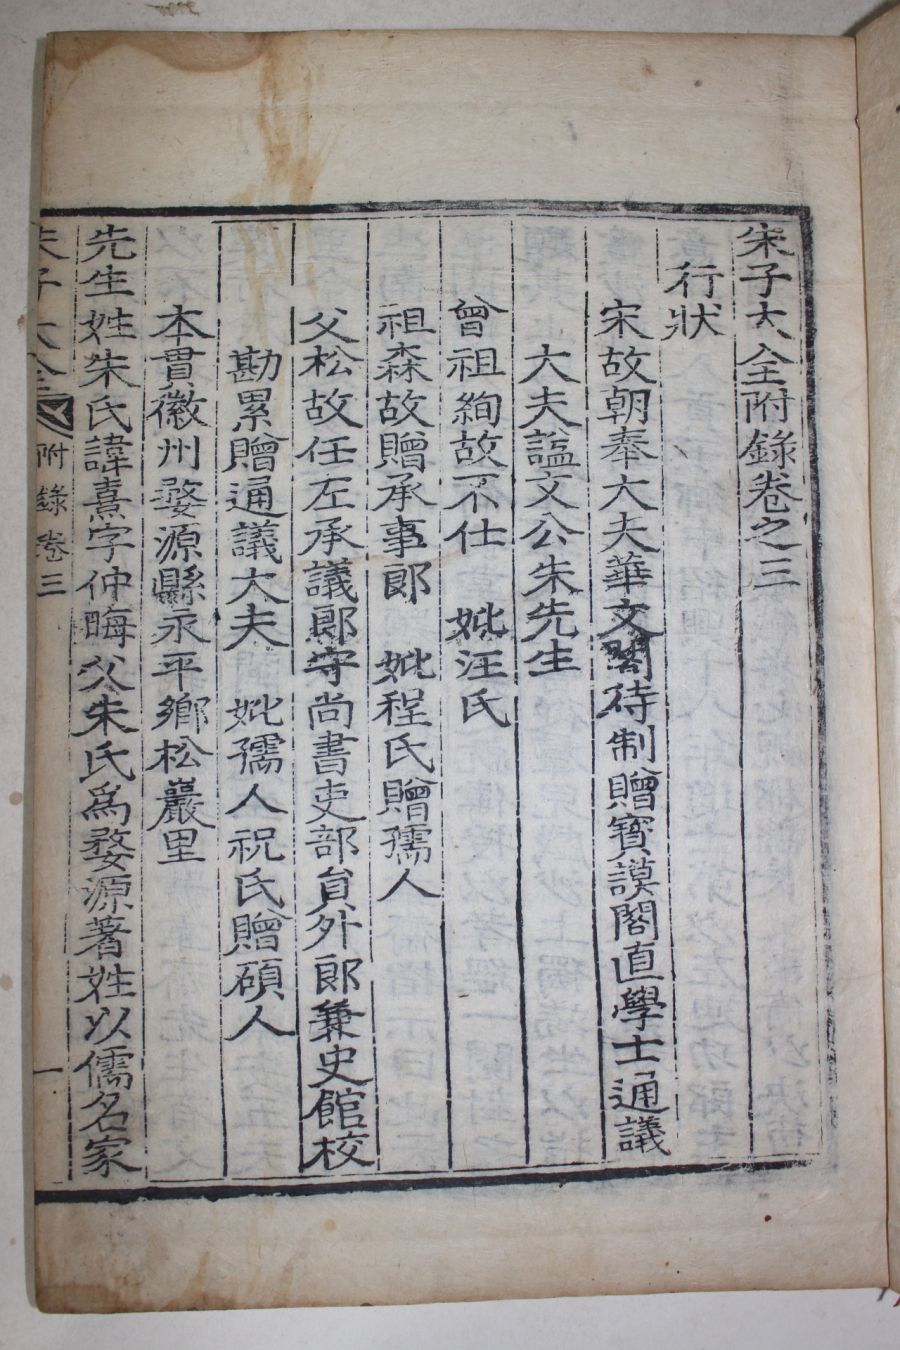 朱子大全附錄卷之三
行狀
宋故朝奉大夫華文閣待制贈寶謨閣直學士通議
大夫諡文公朱先生
曾祖絢故不仕 妣汪氏
祖森故贈承事郞 妣程氏贈孺人
父松故任左承議郞守尚書吏部員外郞兼史館校
勘累贈通議大夫 妣孺人祝氏贈碩人
本貫徽州婺源縣永平鄉松巖里
先生姓朱氏諱熹字仲晦父朱氏爲婺源著姓以儒名家
朱子大全 附錄卷三 一